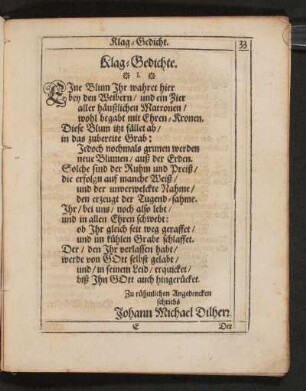 Klag-Gedicht.
33
Klag-Gedichte.
I.
EIne Blum Ihr wahret hier
bey den Weibern/ und ein Zier
aller häußlichen Matronen/
wohl begabt mit Ehren-Kronen.
Diese Blum itzt fället ab/
in das zubereite Grab:
Jedoch nochmals grünen werden
neue Blumen/ auß der Erden.
Solche sind der Ruhm und Preiß/
die erfolgen auf manche Weiß/
und der unverwelckte Nahme/
den erzeugt der Tugend-sahme.
Ihr/ bei uns/ noch also lebt/
und in allen Ehren schwebt:
ob Ihr gleich seit weg geraffet/
und im kühlen Grabe schlaffet.
Der/ den Ihr verlassen habt/
werde von GOtt selbst gelabt/
und/ in seinem Leid/ erquicket/
biß Ihn GOtt auch hingerücket.
Zu rühmlichen Angedencken
schriebs
Johann Michael Dilherr.
E
Der